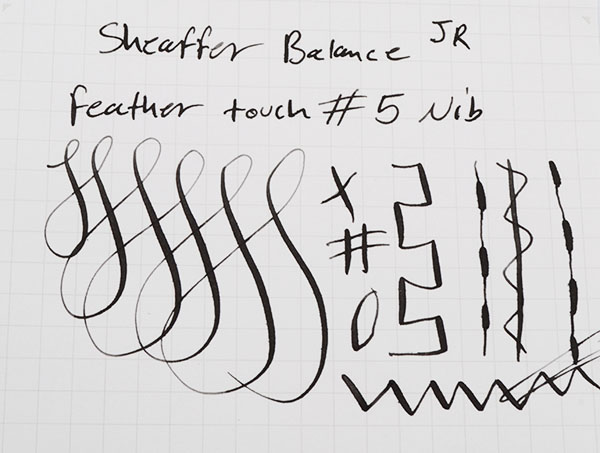 Sheaffer Balance JR
Feather touch #5 Nib
X
#
O